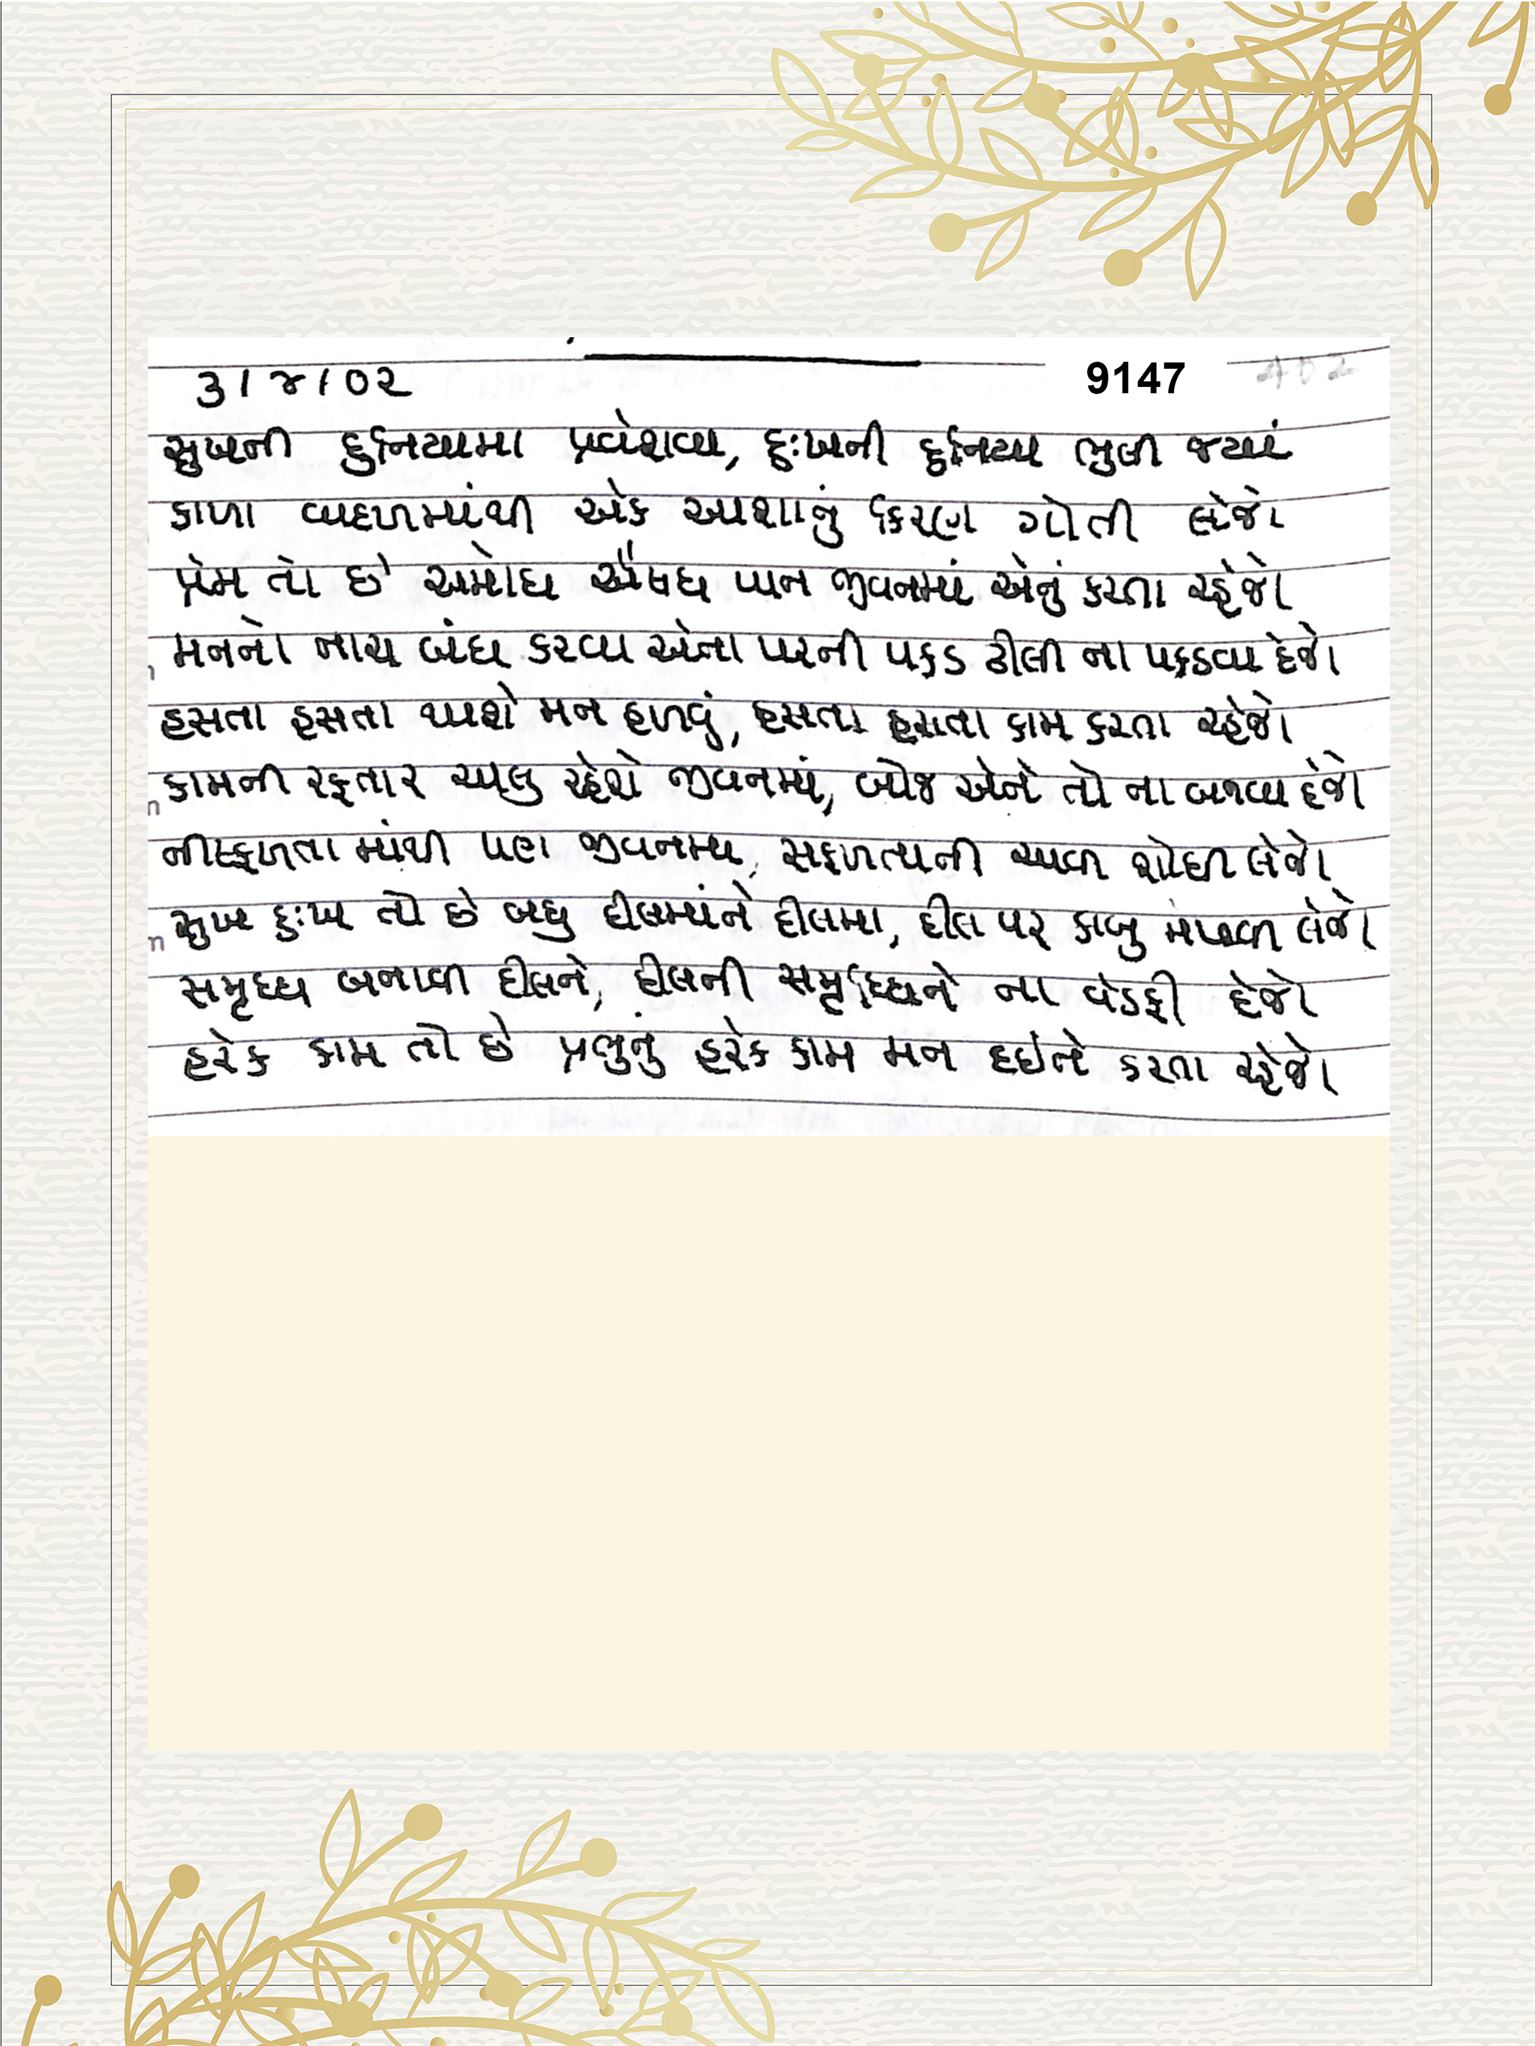 ૩/૪/૦૨ 9147 402
સુખની દુનિયામા પ્રવેશવા, દુઃખની દુનિયા ભુલી જ્યાં
કાળા વાદળમાંથી એક આશાનું કિરણ ગોતી લેજો
પ્રેમ તો છે અમોઘ ઔષધ પાન જીવનમાં એનું કરતા રહેજો
મનનો નાચ બંધ કરવા એના પરની પકડ ઢીલી ના પકડવા દેજો
હસતા હસતા થાશે મન હળવું, હસતા હસતા કામ કરતા રહેજો
કામની રફતાર ચાલુ રહેશે જીવનમાં, બોજ એને તો ના બનવા દેજો
નીસ્ફળતા માંથી પણ જીવનમાં, સફળતાની ચાવી શોધી લેજો
સુખ દુઃખ તો છે બધુ દીલમાંને દીલમા, દીલ પર કાબુ મેળવી લેજો
સમૃધ્ધ બનાવી દીલને, દીલની સમૃધ્ધિને ના વેડફી દેજો
હરેક કામ તો છે પ્રભુનું હરેક કામ મન દઈને કરતા રહેજો